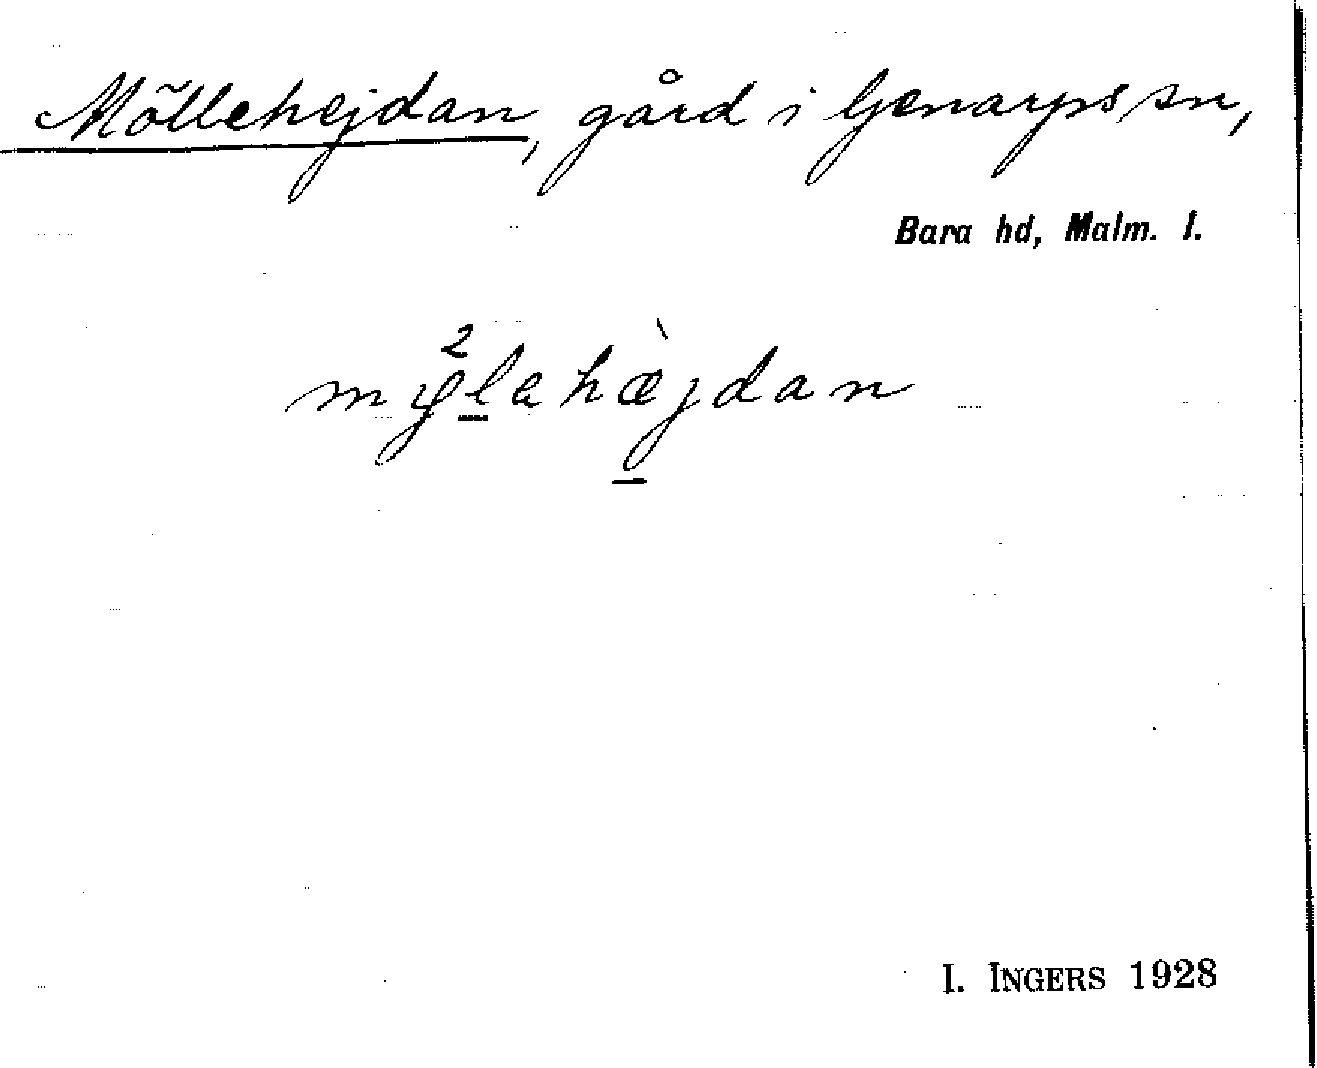 Möllehejdan, gård i Genarps sn,
Bara hd, Malm. l.
I. INGERS 1928